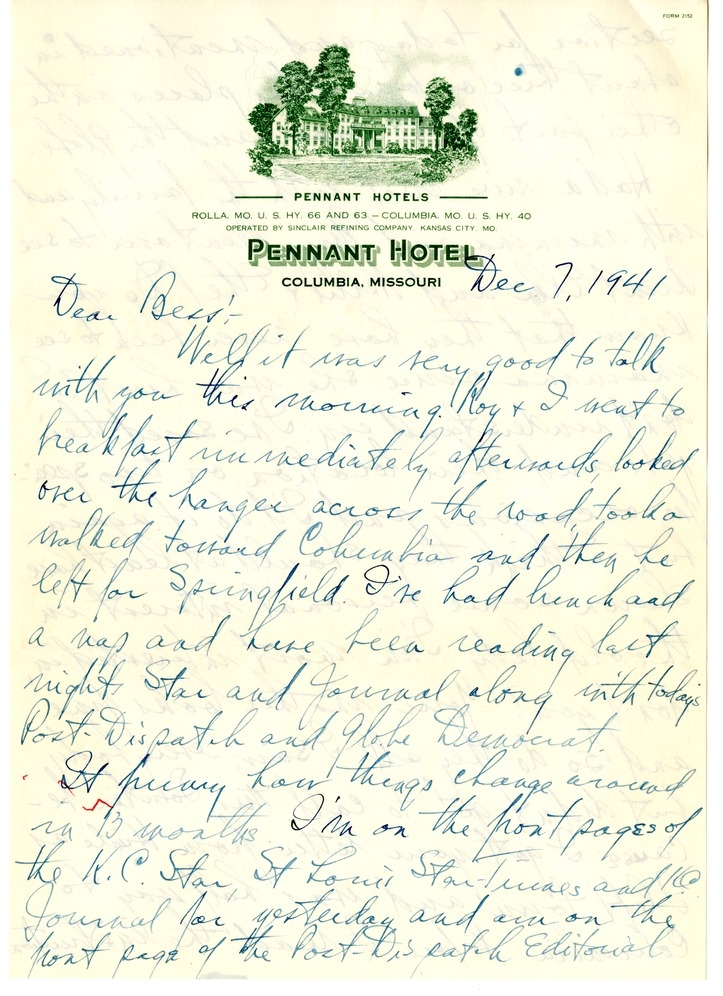 FORM 2152
PENNANT HOTELS
ROLLA. MO. U. S. HY. 66 AND 63 – COLUMBIA. MO. U. S. HY. 40
OPERATED BY SINCLAIR REFINING COMPANY, KANSAS CITY. MO.
PENNANT HOTEL
COLUMBIA, MISSOURI
Dec 7, 1941
Dear Bess:-
Well it was very good to talk
with you this morning. Roy & I went to
breakfast immediately afterwards, looked
over the hanger across the road, took a
walked toward Columbia and then he
left for Springfield. I've had lunch and
a nap and have been reading last
nights Star and Journal along with todays
Post-Dispatch and Globe Democrat.
It funny how things change around
in 13 months. I'm on the front pages of
the K.C. Star, St Louis Star-Times and K.C.
Journal for yesterday and am on the
front page of the Post-Dispatch Editorial